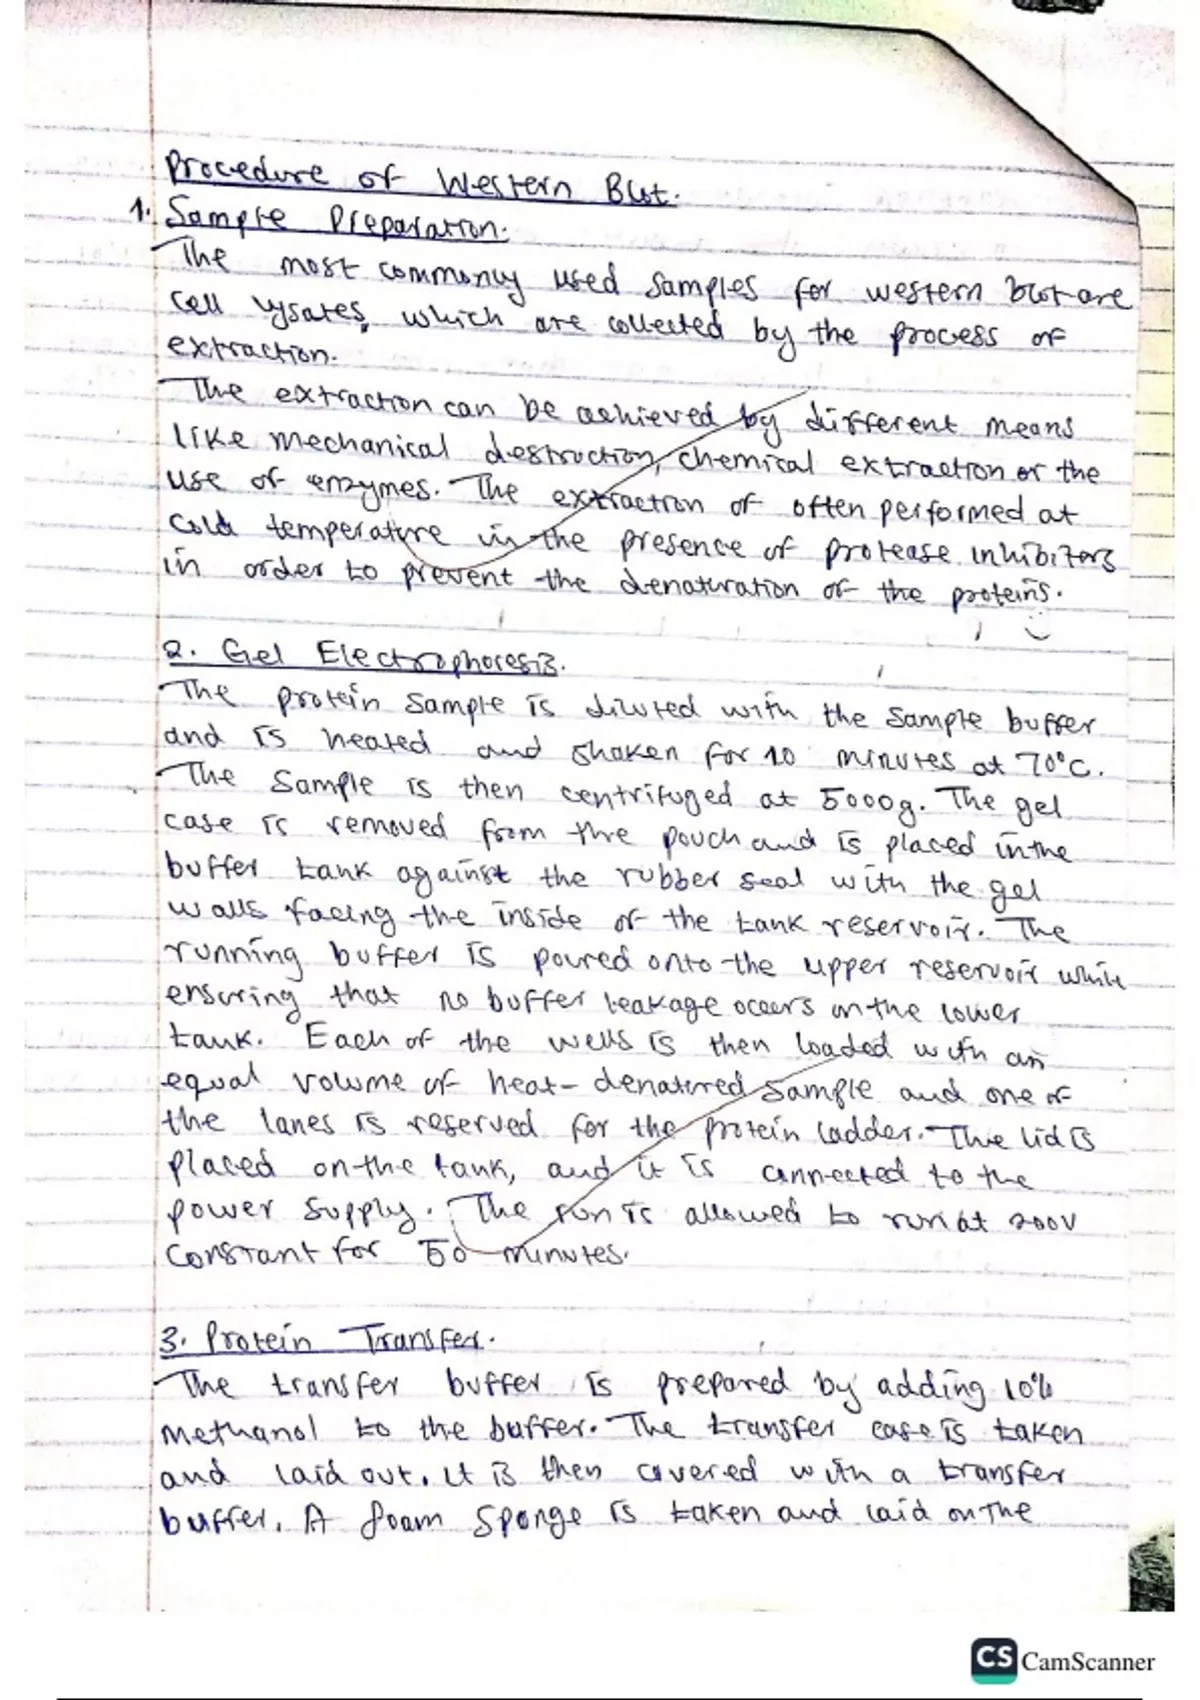 Procedure of Western Blot.
1. Sample Preparation.
The most commonly used samples for western blot are
cell lysates, which are collected by the process of
extraction.
The extraction can be achieved by different means
like mechanical destruction, chemical extraction or the
use of enzymes. The extraction of often performed at
cold temperature in the presence of protease inhibitors
in order to prevent the denaturation of the proteins.
2. Gel Electrophoresis.
The protein sample is diluted with the sample buffer
and is heated and shaken for 10 minutes at 70°C.
The sample is then centrifuged at 5000g. The gel
case is removed from the pouch and is placed in the
buffer tank against the rubber seal with the gel
walls facing the inside of the tank reservoir. The
running buffer is poured onto the upper reservoir while
ensuring that no buffer leakage occurs in the lower
tank. Each of the wells is then loaded with an
equal volume of heat-denatured sample and one of
the lanes is reserved for the protein ladder. The lid is
placed on the tank, and it is connected to the
power supply. The run is allowed to run at 200V
constant for 50 minutes.
3. Protein Transfer.
The transfer buffer is prepared by adding 10%
methanol to the buffer. The transfer case is taken
and laid out. It is then covered with a transfer
buffer. A foam sponge is taken and laid on the
CS CamScanner